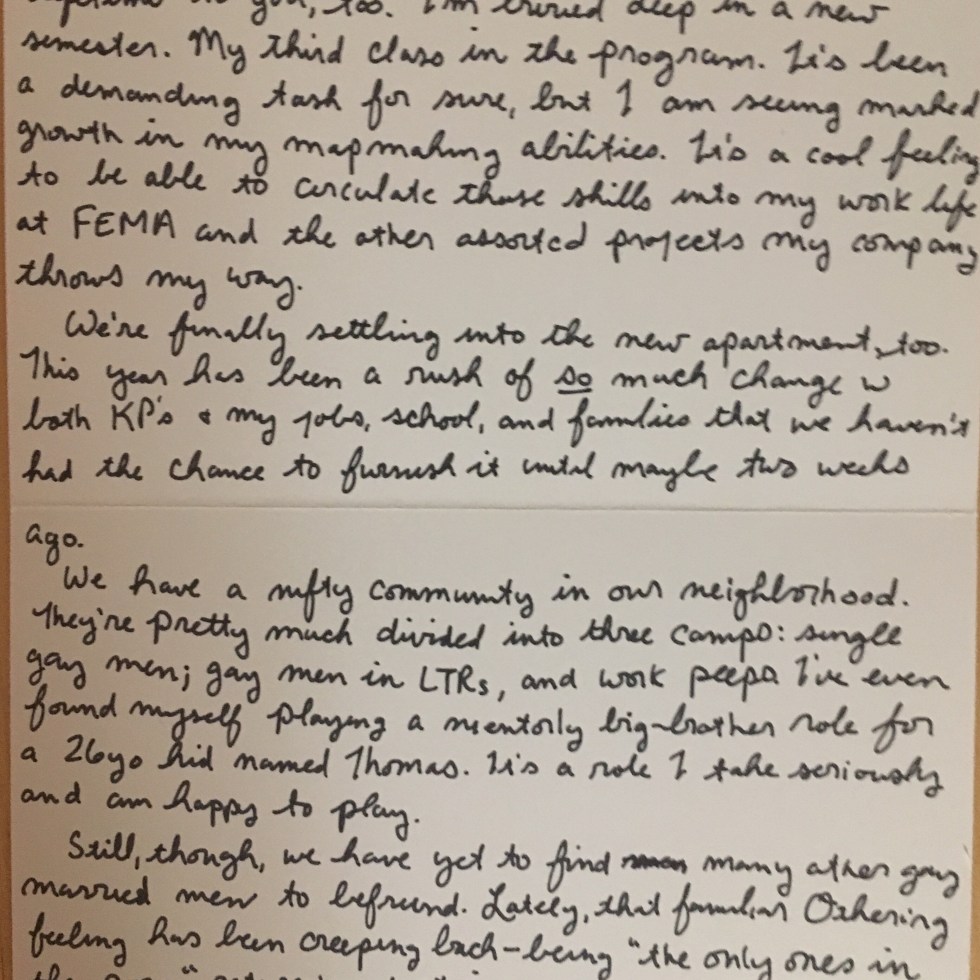 to you, too. I'm buried deep in a new
semester. My third class in the program. It's been
a demanding task for sure, but I am seeing marked
growth in my mapmaking abilities. It's a cool feeling
to be able to circulate those skills into my work life
at FEMA and the other assorted projects my company
throws my way.
We're finally settling into the new apartment, too.
This year has been a rush of so much change w
both KP's & my jobs, school, and families that we haven't
had the chance to furnish it until maybe two weeks
ago.
We have a nifty community in our neighborhood.
They're pretty much divided into three camps: single
gay men; gay men in LTRs, and work peeps. I've even
found myself playing a mentorly big-brother role for
a 26yo kid named Thomas. It's a role I take seriously
and am happy to play.
Still, though, we have yet to find many other gay
married men to befriend. Lately, that familiar Othering
feeling has been creeping back-being "the only ones in